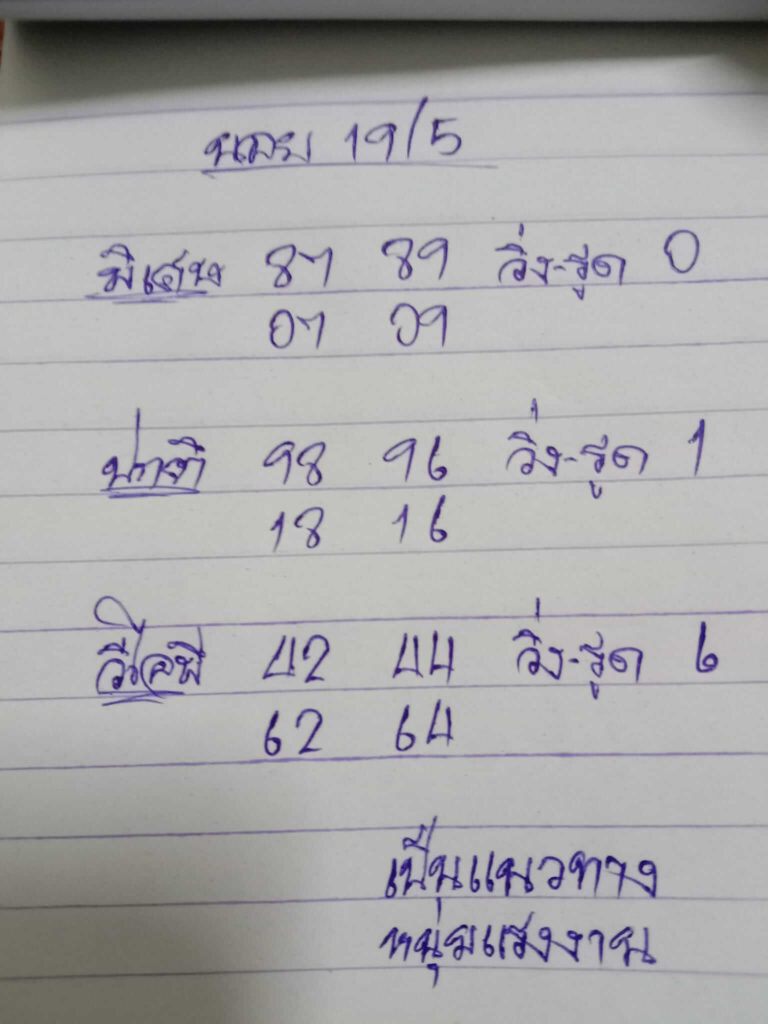 นอย 19/5
พิเศษ 87 89 วิ่ง-รูด 0
07 09
ปกติ 98 96 วิ่ง-รูด 1
18 16
วีไอพี 42 44 วิ่ง-รูด 6
62 64
เป็นแนวทาง
หนุ่มแรงงาน